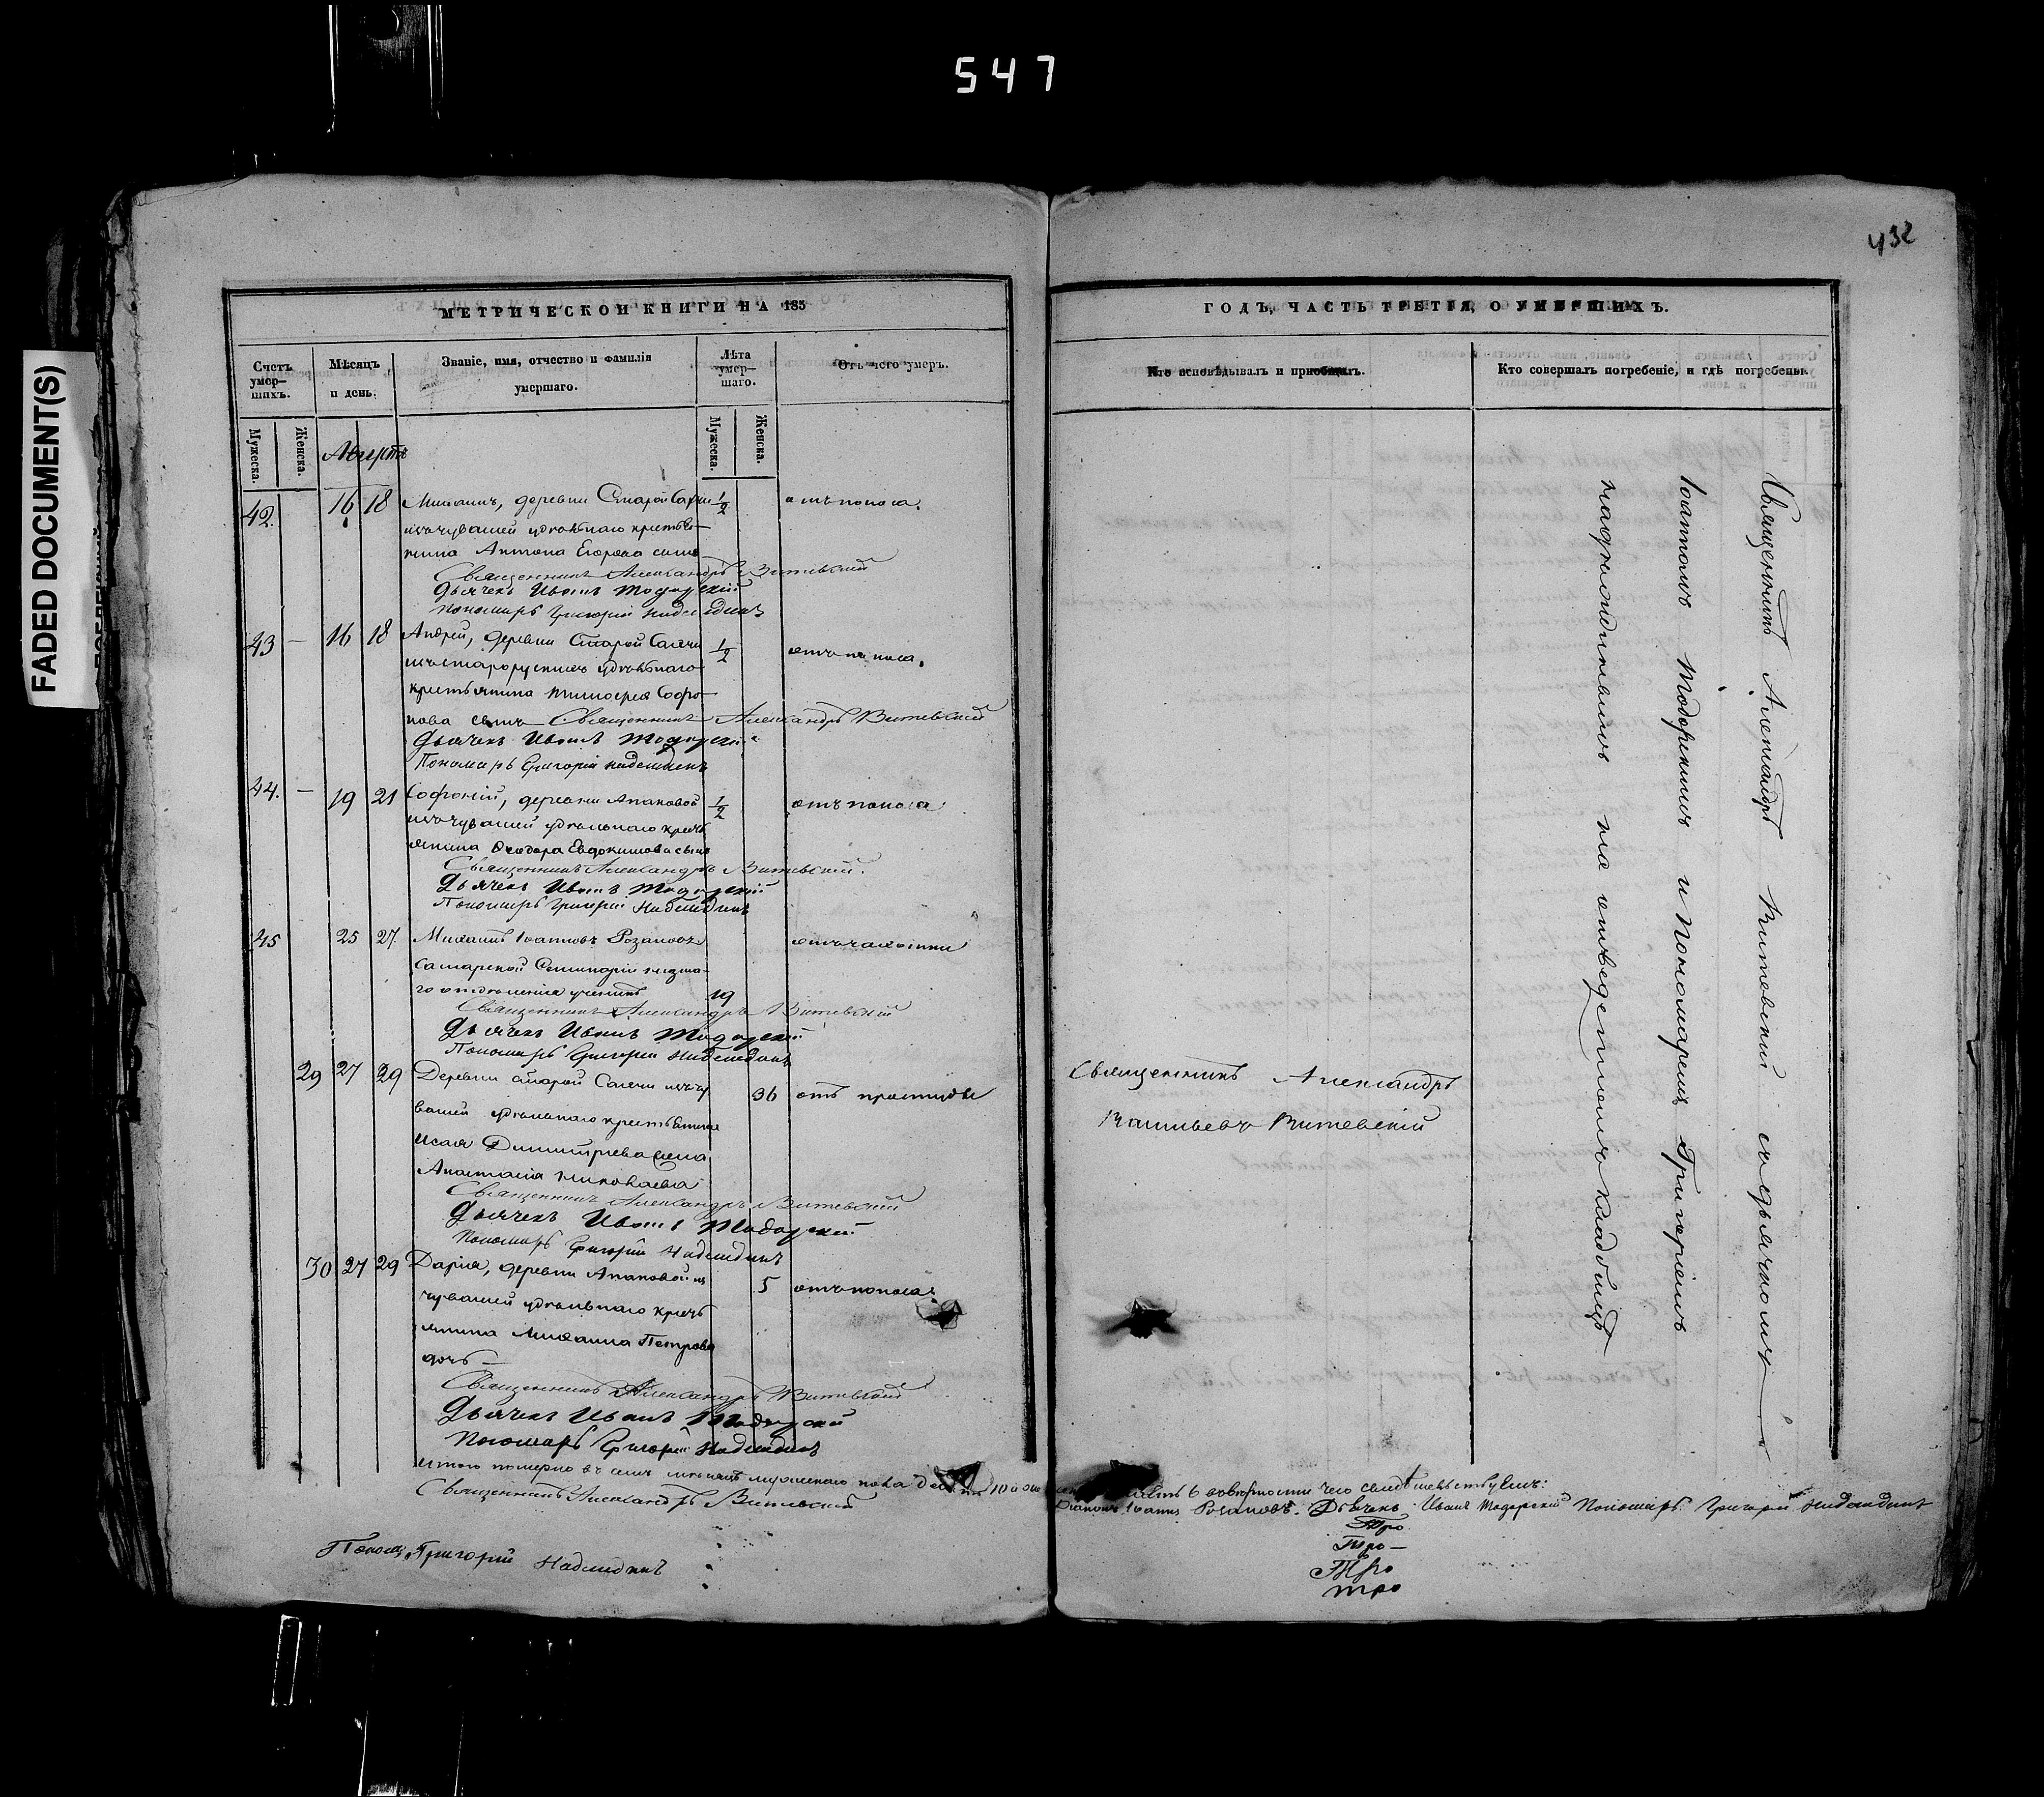 547
FADED DOCUMENT(S)
432
МЕТРИЧЕСКОЙ КНИГИ НА 185
Счетъ умер-
шихъ.
Мѣсяцъ
и день.
Званіе, имя, отчество и фамилія
умершаго.
Лѣта
умер-
шаго.
Отъ чего умеръ.
Мужеска.
Женска.
Мужеска.
Женска.
Августъ
42. 16 18 Михаилъ, деревни Старой 1/2 отъ поноса.
изъ чувашей удѣльнаго крестья-
нина Антона Егорова сынъ
Священникъ Александръ Витевскій
Дьячекъ Иванъ Тодорскій
Пономарь Григорій Надеждинъ
43 — 16 18 Андрей, деревни Старой 1/2 отъ поноса.
удѣльнаго
крестьянина Тимофея Софро-
нова сынъ Священникъ Александръ Витевскій
Дьячекъ Иванъ Тодорскій
Пономарь Григорій Надеждинъ
44. — 19 21 Софроній, деревни Апаковой 1/2 отъ поноса
изъ чувашей удѣльнаго кресть
янина Ѳеодора Евдокимова сынъ
Священникъ Александръ Витевскій.
Дьячекъ Иванъ Тодорскій
Пономарь Григорій Надеждинъ
45 25 27. Михаилъ Іоанновъ Розановъ отъ чахотки
Самарской Семинаріи низша-
го отдѣленія ученикъ 19
Священникъ Александръ Витевскій
Дьячекъ Иванъ Тодорскій
Пономарь Григорій Надеждинъ
29 27 29 Деревни Старой изъ чу 36 отъ простуды
вашей удѣльнаго крестьянина
Исаія Димитріева жена
Анастасія Николаева
Священникъ Александръ Витевскій
Дьячекъ Иванъ Тодорскій
Пономарь Григорій Надеждинъ
30 27 29 Дарія, деревни Апаковой изъ 5 отъ поноса.
чувашей удѣльнаго кресть
янина Михаила Петрова
дочь —
Священникъ Александръ Витевскій
Дьячекъ Иванъ Тодорскій
Пономарь Григорій Надеждинъ
Итого померло въ семъ мѣсяцѣ мужескаго пола 10
Священникъ Александръ Витевскій
Григорій Надеждинъ
ГОДЪ, ЧАСТЬ ТРЕТІЯ, О УМЕРШИХЪ.
Кто исповѣдывалъ и пріобщалъ.
Кто совершалъ погребеніе, и гдѣ погребены.
Священникъ Александръ
Васильевъ Витевскій
Священникъ Александръ Витевскій съ дьячкомъ
Іоанномъ Тодорскимъ и Пономаремъ Григоріемъ
Надеждинымъ на отведенномъ кладбищѣ
6 въ вѣрности чего свидѣтельствуемъ:
Діаконъ Іоаннъ Розановъ. Дьячекъ Иванъ Тодорскій Пономарь Григорій Надеждинъ
Тро
Тро —
Тро
тро